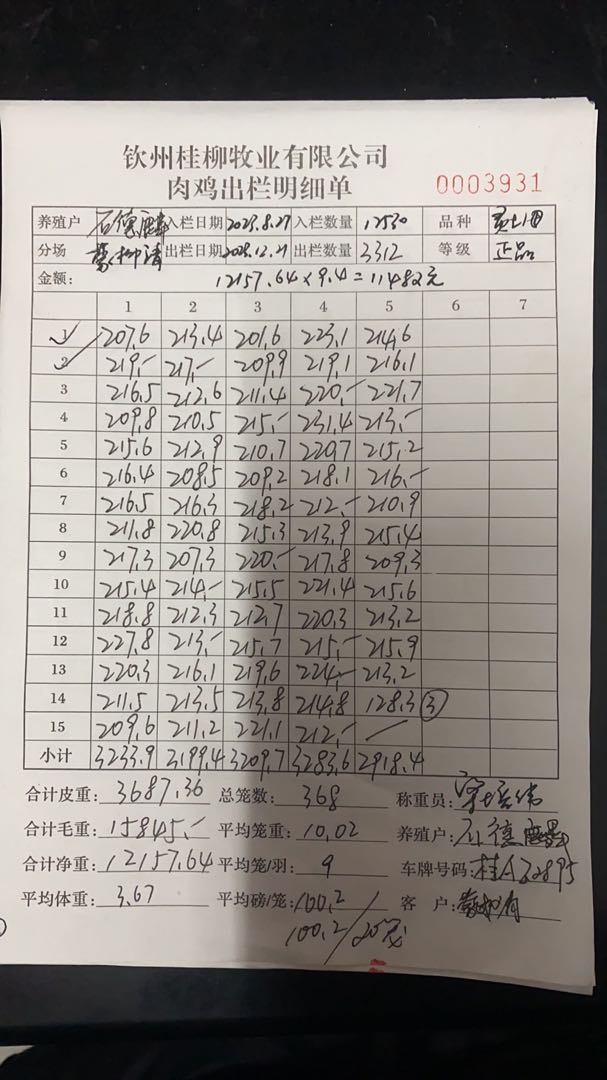 钦州桂柳牧业有限公司
肉鸡出栏明细单 0003931
养殖户 石德麟 入栏日期 2023.8.27 入栏数量 12530 品种
分场 出栏日期 2023.12.21 出栏数量 3312 等级 正品
金额: 12157.64×9.4=11482元
1 2 3 4 5 6 7
1 207.6 213.4 201.6 223.1 214.6
2 219.- 217.- 209.9 219.1 216.1
3 216.5 212.6 211.4 220.- 221.7
4 209.8 210.5 215.- 231.4 213.-
5 215.6 212.9 210.7 220.7 215.2
6 216.4 208.5 209.2 218.1 216.-
7 216.5 216.3 218.2 212.- 210.9
8 211.8 220.8 215.3 213.9 215.4
9 217.3 207.3 220.- 217.8 209.3
10 215.4 214.- 215.5 221.4 215.6
11 218.8 212.3 212.7 220.3 213.2
12 227.8 213.- 215.7 215.- 215.9
13 220.3 216.1 219.6 224.- 213.2
14 211.5 213.5 213.8 214.8 128.3 ③
15 209.6 211.2 221.1 212.-
小计 3233.9 3199.4 3209.7 3283.6 2918.4
合计皮重: 3687.36 总笼数: 368 称重员:
合计毛重: 15845.- 平均笼重: 10.02 养殖户: 石德
合计净重: 12157.64 平均笼/羽: 9 车牌号码: 桂A32895
平均体重: 3.67 平均磅/笼: 100.2 客 户:
100.2/20笼